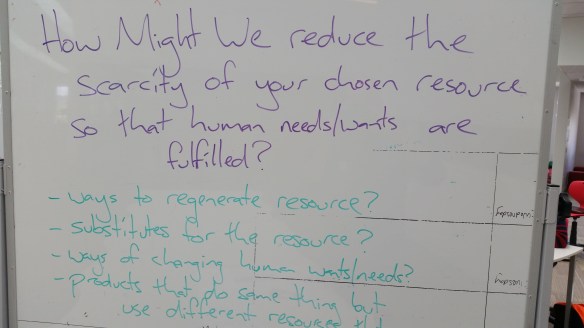 How Might We reduce the
scarcity of your chosen resource
so that human needs/wants are
fulfilled?
- ways to regenerate resource?
- substitutes for the resource?
- ways of changing human wants/needs?
- products that do same thing but
use different resources that